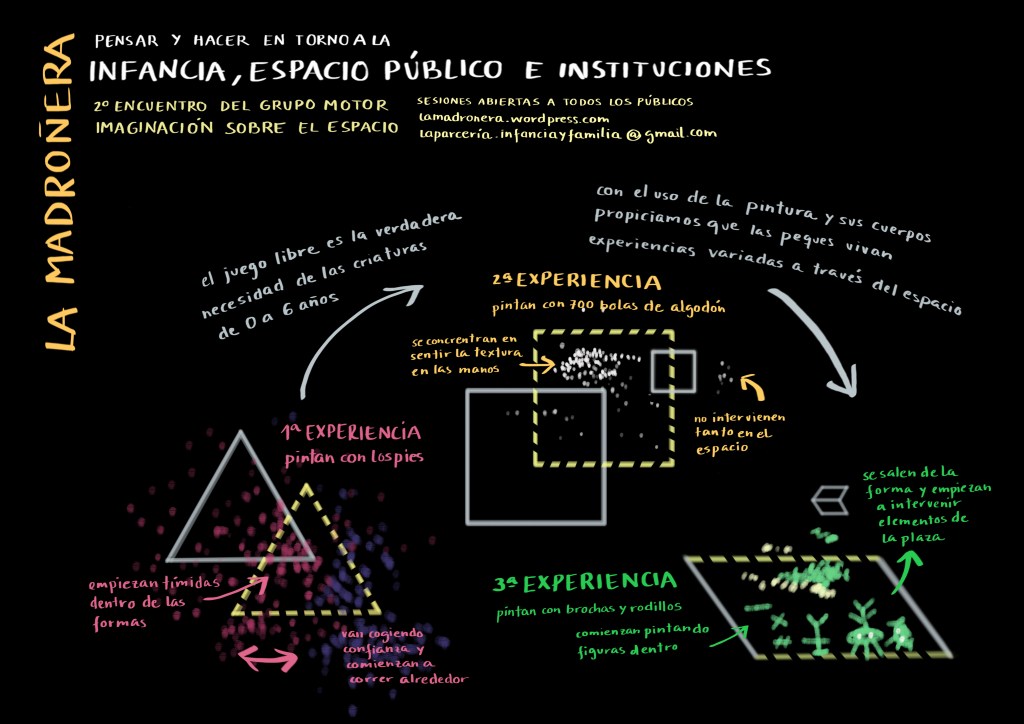 LA MADROÑERA
PENSAR Y HACER EN TORNO A LA
INFANCIA, ESPACIO PÚBLICO E INSTITUCIONES
2º ENCUENTRO DEL GRUPO MOTOR
IMAGINACIÓN SOBRE EL ESPACIO
SESIONES ABIERTAS A TODOS LOS PÚBLICOS
lamadronera.wordpress.com
laparcería.infanciayfamilia@gmail.com
el juego libre es la verdadera
necesidad de las criaturas
de 0 a 6 años
con el uso de la pintura y sus cuerpos
propiciamos que las peques vivan
experiencias variadas a través del espacio
2ª EXPERIENCIA
pintan con 700 bolas de algodón
se concrentran en
sentir la textura
en las manos
no intervienen
tanto en el
espacio
1ª EXPERIENCIA
pintan con los pies
empiezan tímidas
dentro de las
formas
van cogiendo
confianza y
comienzan a
correr alrededor
3ª EXPERIENCIA
pintan con brochas y rodillos
comienzan pintando
figuras dentro
se salen de la
forma y empiezan
a intervenir
elementos de
la plaza